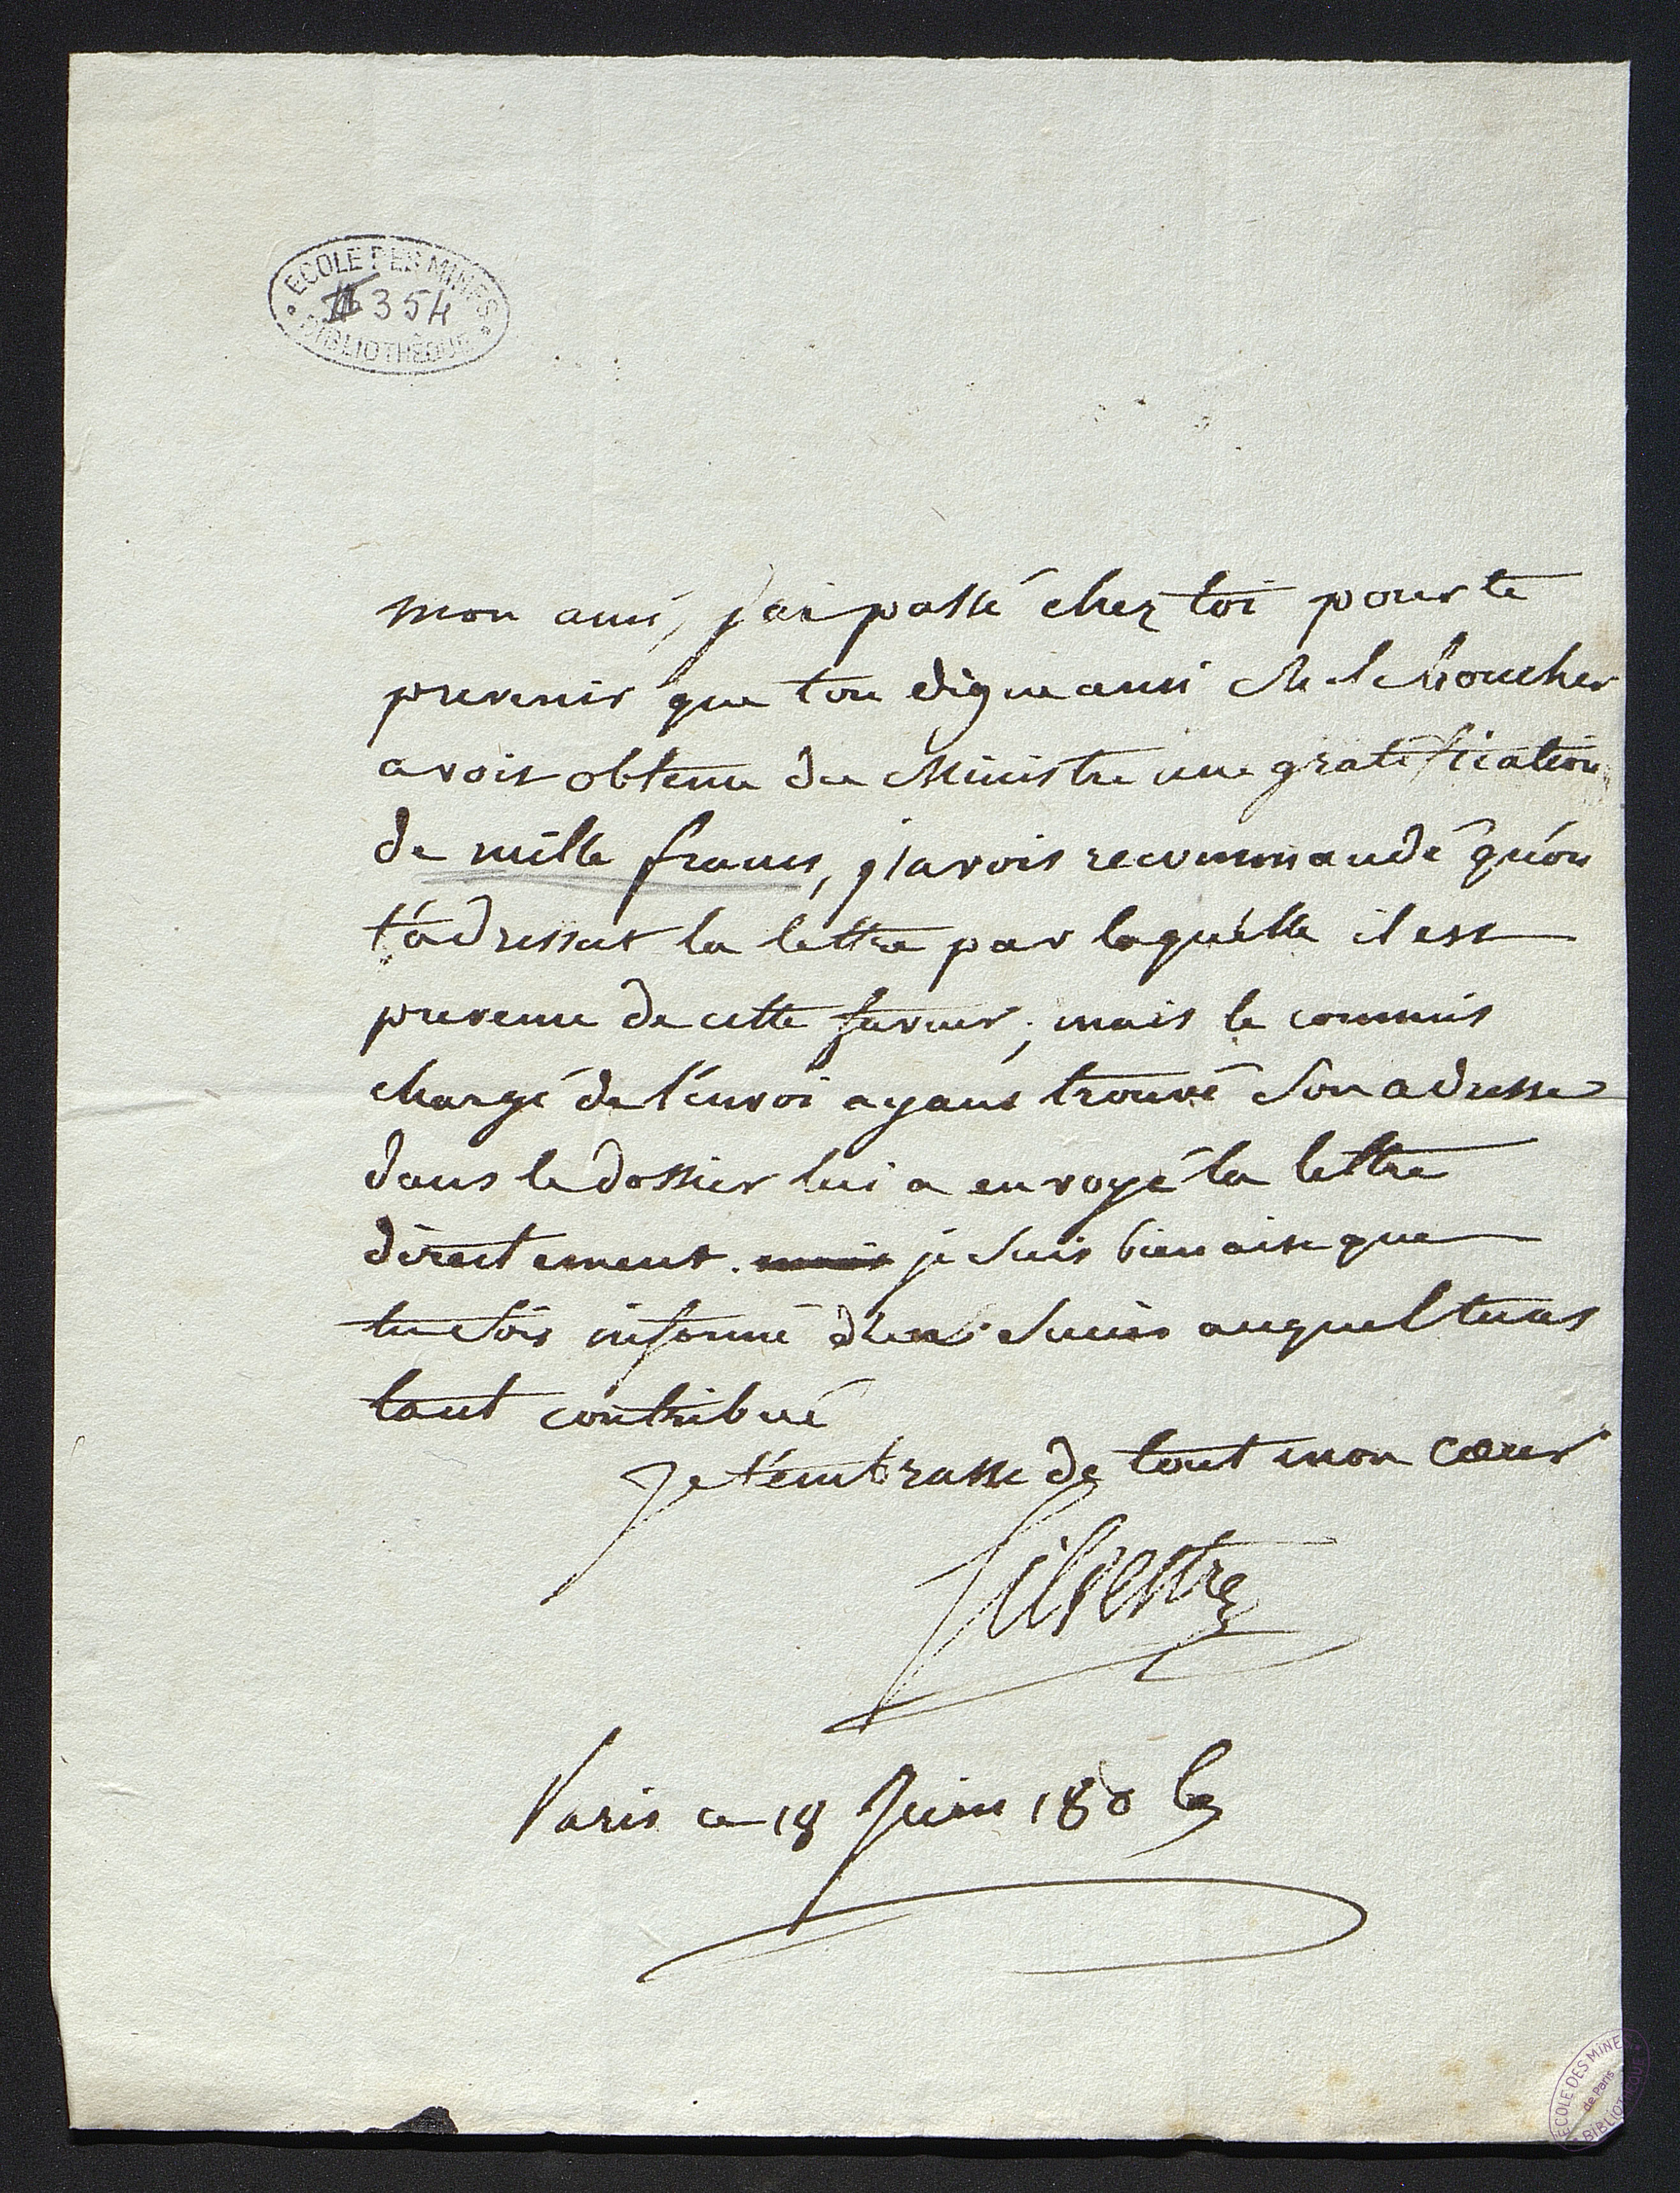 ECOLE DES MINES
354
BIBLIOTHÈQUE
mon ami, j'ai passé chez toi pour te
prevenir que ton digne ami M.
avoit obtenu du Ministre une gratification
de mille francs, j'avois recommandé qu'on
t'adressat la lettre par laquelle il est
prevenu de cette faveur; mais le commis
chargé de l'envoi ayant trouvé son adresse
dans le dossier lui a envoyé la lettre
directement. mais je suis bien aise que
tu sois informé d'un succès auquel tu as
tant contribué
Je t'embrasse de tout mon cœur
Silvestre
Paris ce 18 Juin 180
ECOLE DES MINES
de Paris
BIBLIOTHEQUE